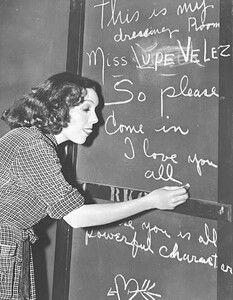 This is my
dressing Room
Miss LUPE VELEZ
So please
Come in
I love you
all
you is all
powerful character